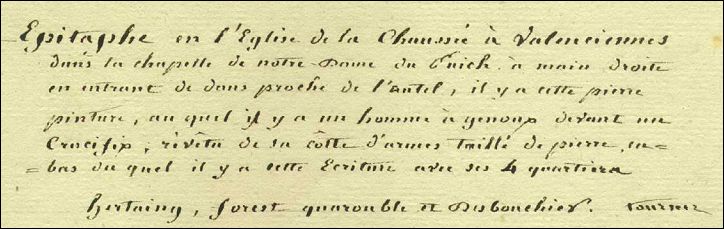 Epitaphe en l'Eglise de la Chaussée à Valenciennes
dans la chapelle de notre Dame du Puich. à main droite
en entrant de dans proche de l'Autel, il y a cette pierre
pinture, au quel il y a un homme à genoux devant un
Crucifix, rêvêtu de sa côtte d'armes taillé de pierre, au-
-bas du quel il y a cette Ecriture avec ses 4 quartiers
hertaing, forest quarouble et Desbouchier. tournez